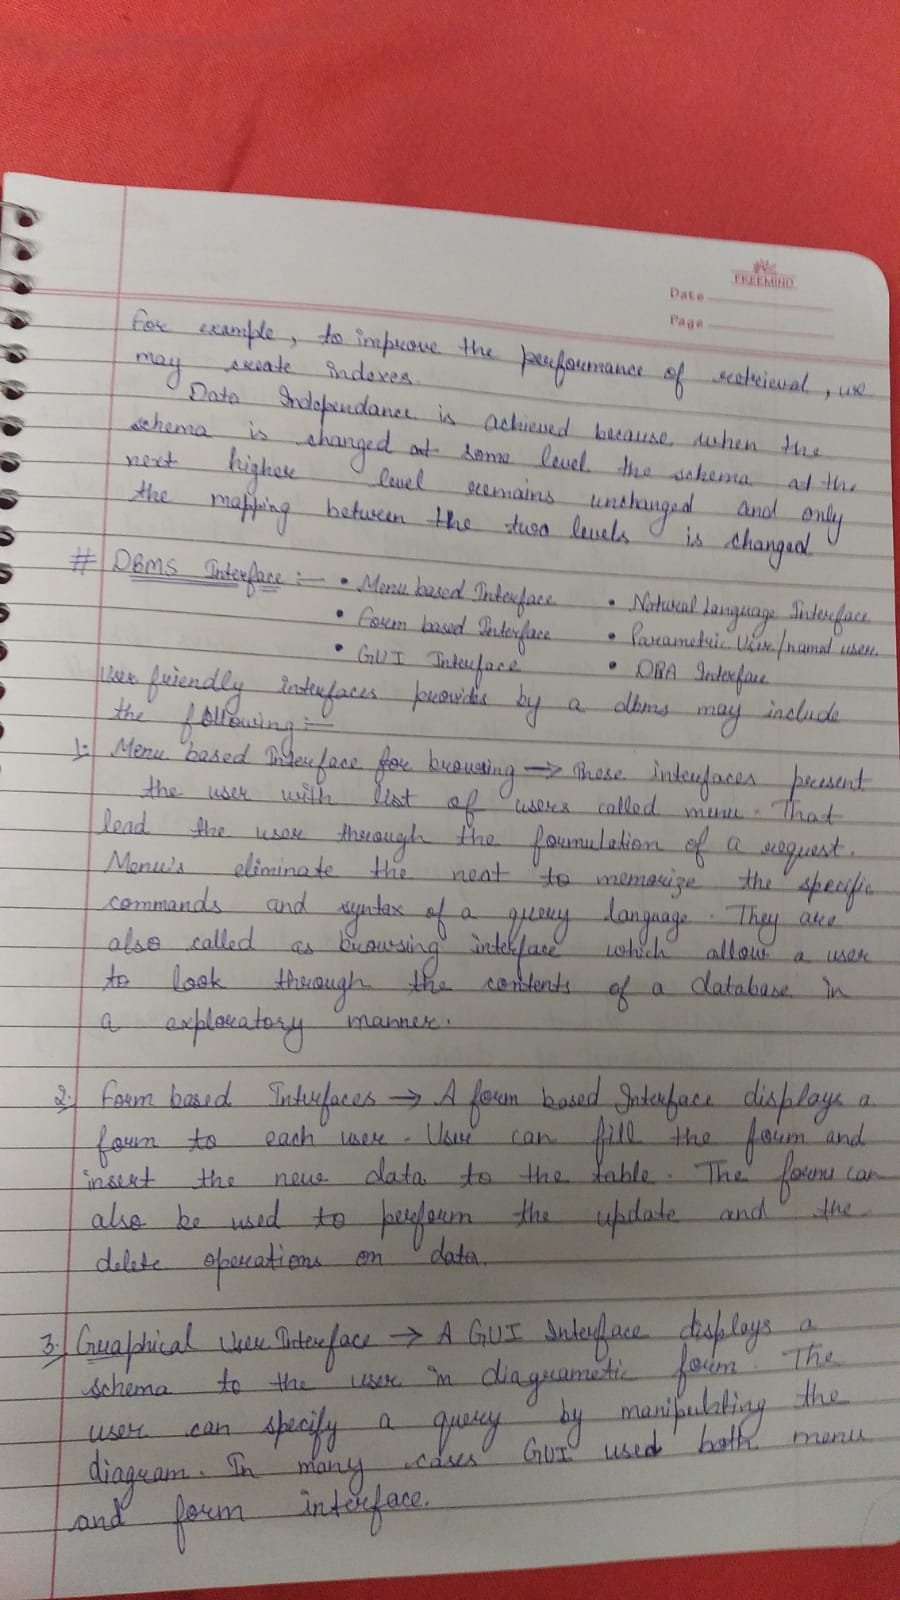 FREEMIND
Date
Page
For example, to improve the performance of retrieval, we
may create indexes.
Data Independance is achieved because when the
schema is changed at some level the schema at the
next higher level remains unchanged and only
the mapping between the two levels is changed
# DBMS Interface :- • Menu based Interface • Natural Language Interface
• Form based Interface • Parametric User/ user
• GUI Interface • DBA Interface
User friendly interfaces provides by a dbms may include
the following :-
1. Menu based Interface for browsing → These interfaces present
the user with list of users called menu. That
lead the user through the formulation of a request.
Menu's eliminate the neat to memorize the specific
commands and syntax of a query language. They are
also called as browsing interface which allow a user
to look through the contents of a database in
a exploratory manner.
2. Form based Interfaces → A form based Interface displays a
form to each user. User can fill the form and
insert the new data to the table. The forms can
also be used to perform the update and the
delete operations on data.
3. Graphical User Interface → A GUI Interface displays a
schema to the user in diagrametic form. The
user can specify a query by manipulating the
diagram. In many cases GUI used both menu
and form interface.